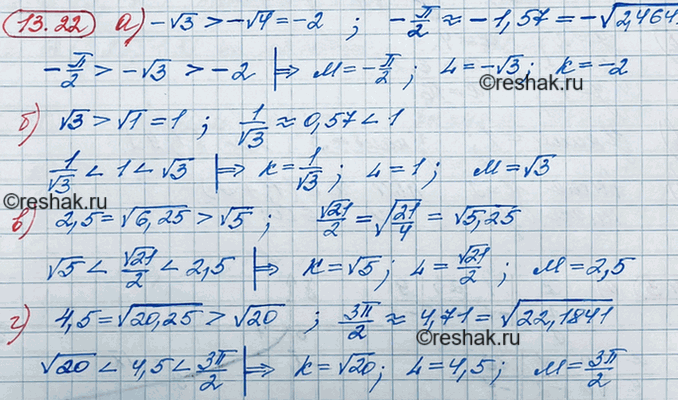 13.22 а) -√3 > -√4 = -2 ; -π/2 ≈ -1,57 = -√2,464
-π/2 > -√3 > -2 |⇒ M = -π/2 ; L = -√3 ; K = -2
© reshak.ru
б) √3 > √1 = 1 ; 1/√3 ≈ 0,57 < 1
1/√3 < 1 < √3 |⇒ K = 1/√3 ; L = 1 ; M = √3
© reshak.ru
в) 2,5 = √6,25 > √5 ; √21/2 = √(21/4) = √5,25
√5 < √21/2 < 2,5 |⇒ K = √5 ; L = √21/2 ; M = 2,5
г) 4,5 = √20,25 > √20 ; 3π/2 ≈ 4,71 = √22,1841
© reshak.ru
√20 < 4,5 < 3π/2 |⇒ K = √20 ; L = 4,5 ; M = 3π/2